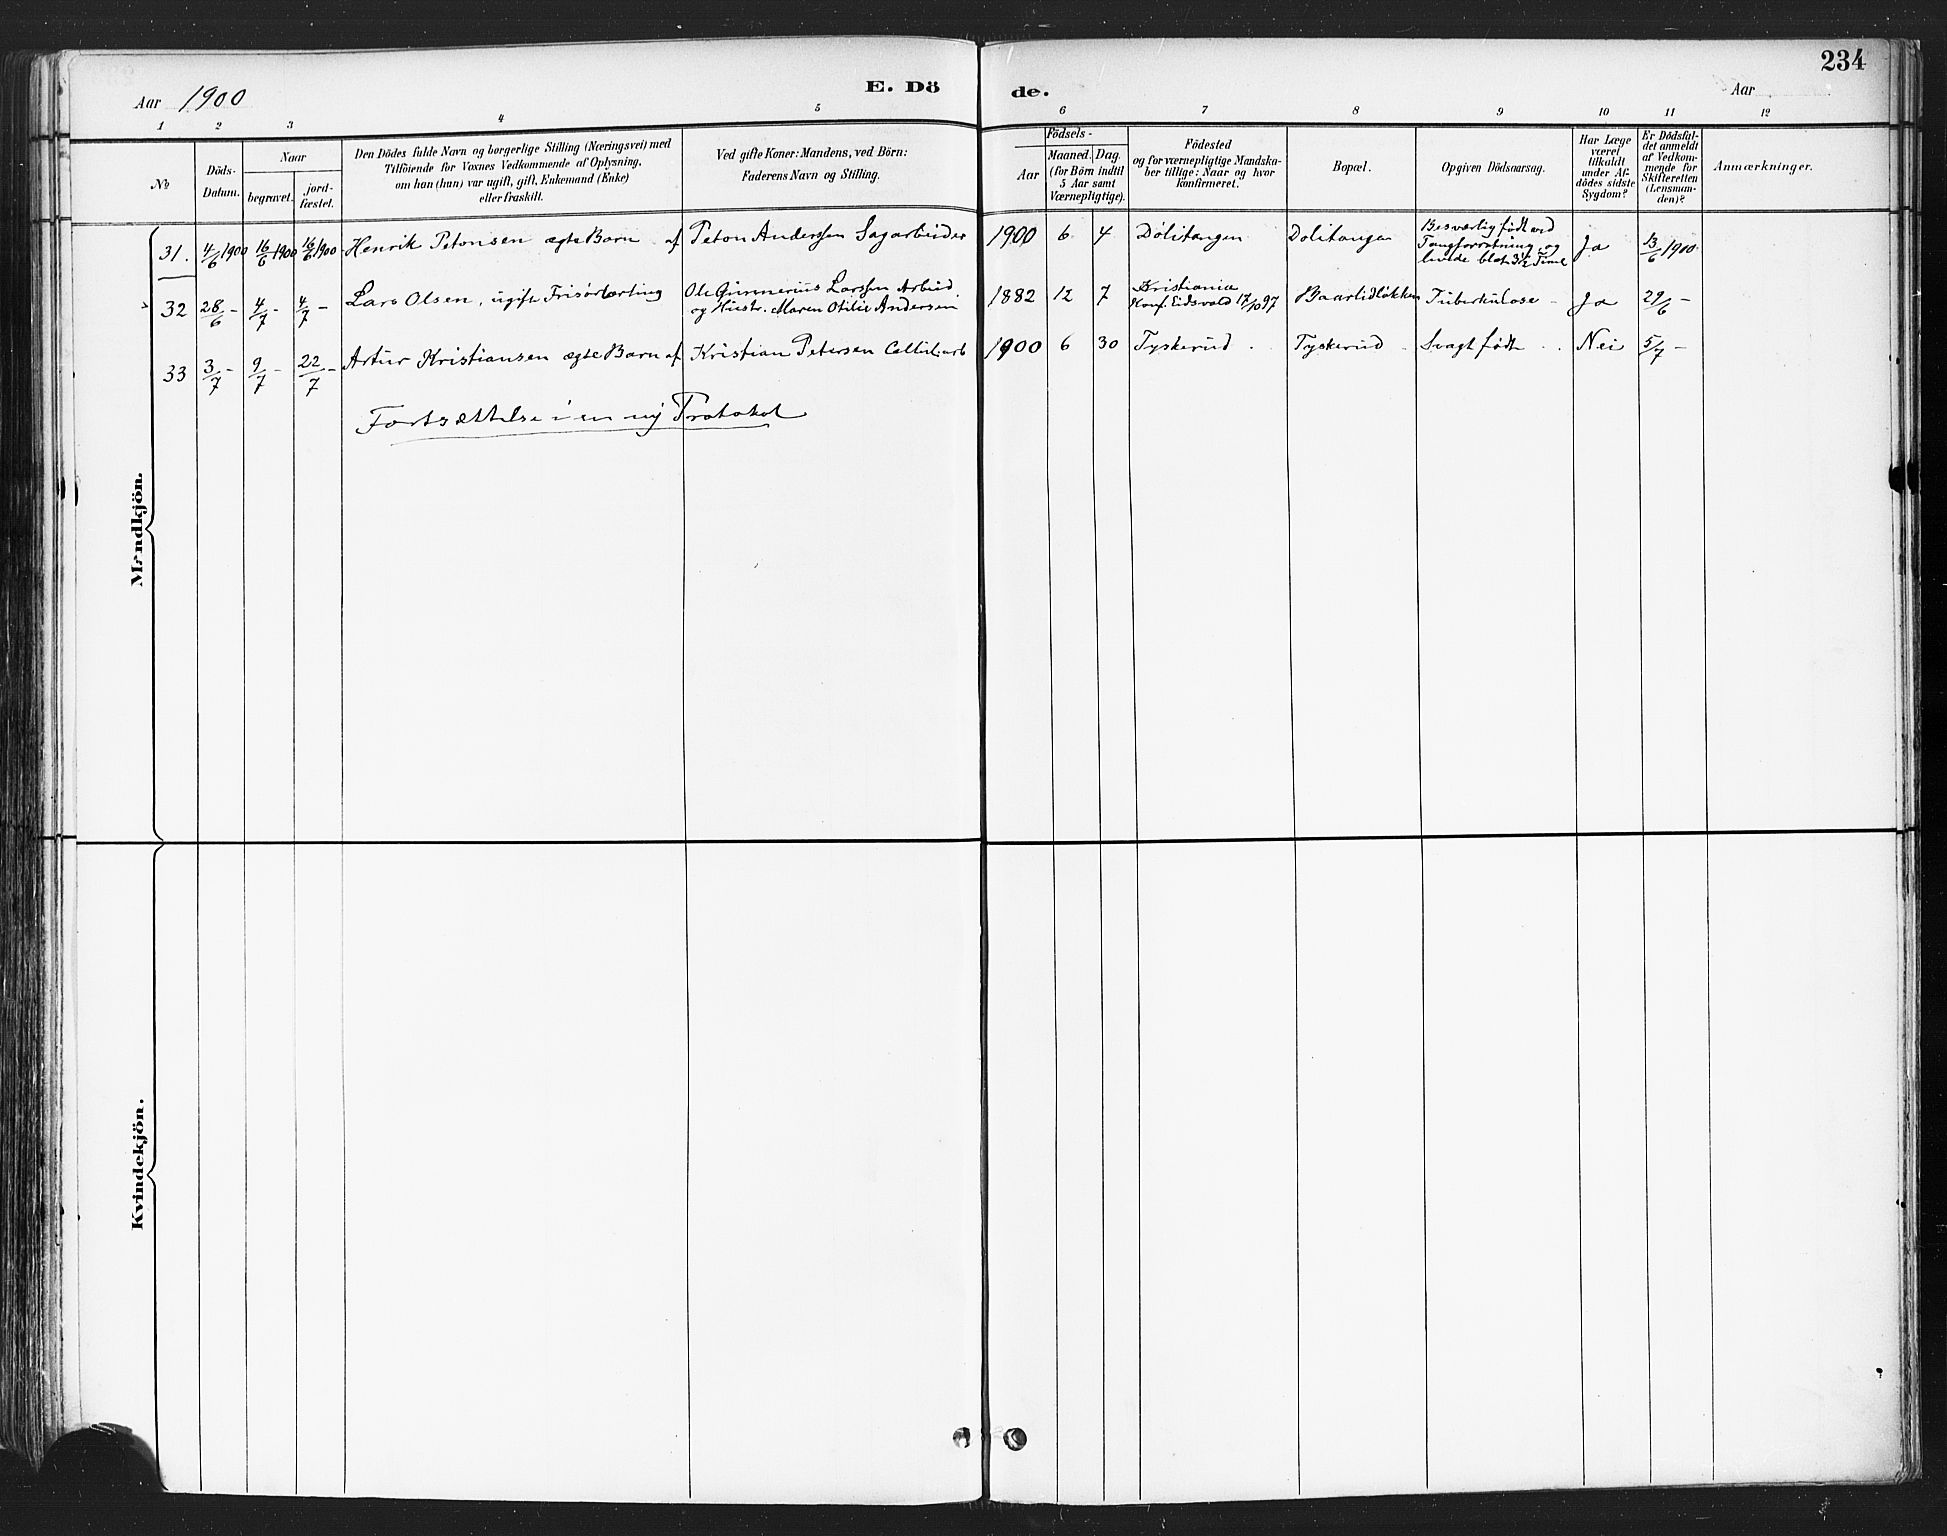 234
Aar 1900
E. Dö
de.
Aar
1 2 3 4 5 6 7 8 9 10 11 12
No
Döds-
Datum.
Naar
begravet.
jord-
fæstet.
Den Dödes fulde Navn og borgerlige Stilling (Næringsvei) med
Tilföiende for Voxnes Vedkommende af Oplysning,
om han (hun) var ugift, gift, Enkemand (Enke)
eller fraskilt.
Ved gifte Koner: Mandens, ved Börn:
Faderens Navn og Stilling.
Födsels-
Aar
Maaned. Dag.
(for Börn indtil
5 Aar samt
Værnepligtige).
Födested
og for værnepligtige Mandska-
ber tillige: Naar og hvor
konfirmeret.
Bopæl.
Opgiven Dödsaarsag.
Har Læge
været
tilkaldt
under Af-
dödes sidste
Sygdom?
Er Dödsfal-
det anmeldt
af Vedkom-
mende for
Skifteretten
(Lensman-
den)?
Anmærkninger.
Mandkjön.
31. 4/6 1900 16/6 1900 16/6 1900 Henrik Petonsen ægte Barn af Peton Anderssen Sagarbeider 1900 6 4 Dölitangen Dölitangen Besværlig födt ved Ja 13/6 1900
Tangforretning og
levede blot 3½ Time
32 28/6 – 4/7 – 4/7 – Lars Olsen, ugift Frisörlærling Ole Gunnerius Larssen Arbeid. 1882 12 7 Kristiania Baarlidlökken Tuberkulose – Ja 29/6 –
og Hustr. Maren Otilie Andersen Konf. Eidsvold 17/10 97
33 3/7 – 9/7 – 22/7 – Artur Kristiansen ægte Barn af Kristian Petersen Cellul.arb 1900 6 30 Tyskerud . Tyskerud . Svagt födt . . Nei 5/7 –
Fortsættelse i en ny Protokol
Kvindekjön.